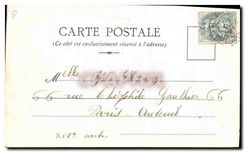 CARTE POSTALE
(Ce côté est exclusivement réservé à l'adresse)
Melle
66 rue Théophile Gauthier 66
Paris Auteuil
XVIe arrt